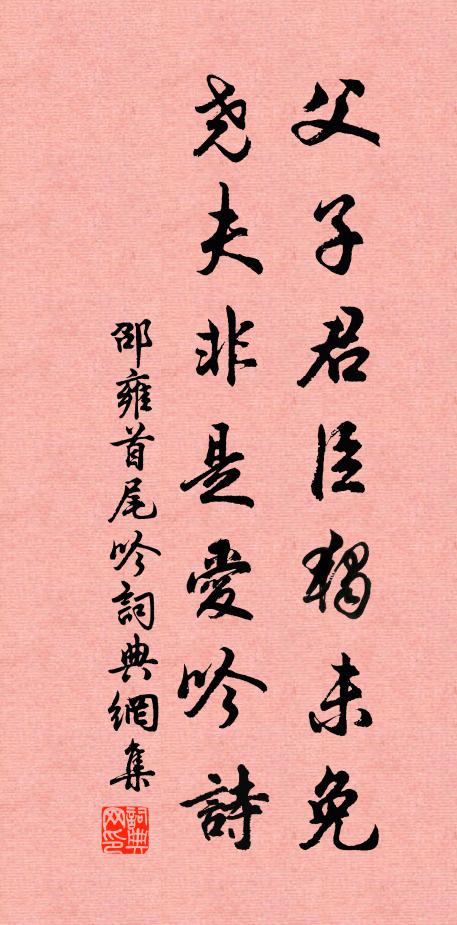 父子君臣獨未免
堯夫非是愛吟詩
邵雍首尾吟詞典網集
詞典网印